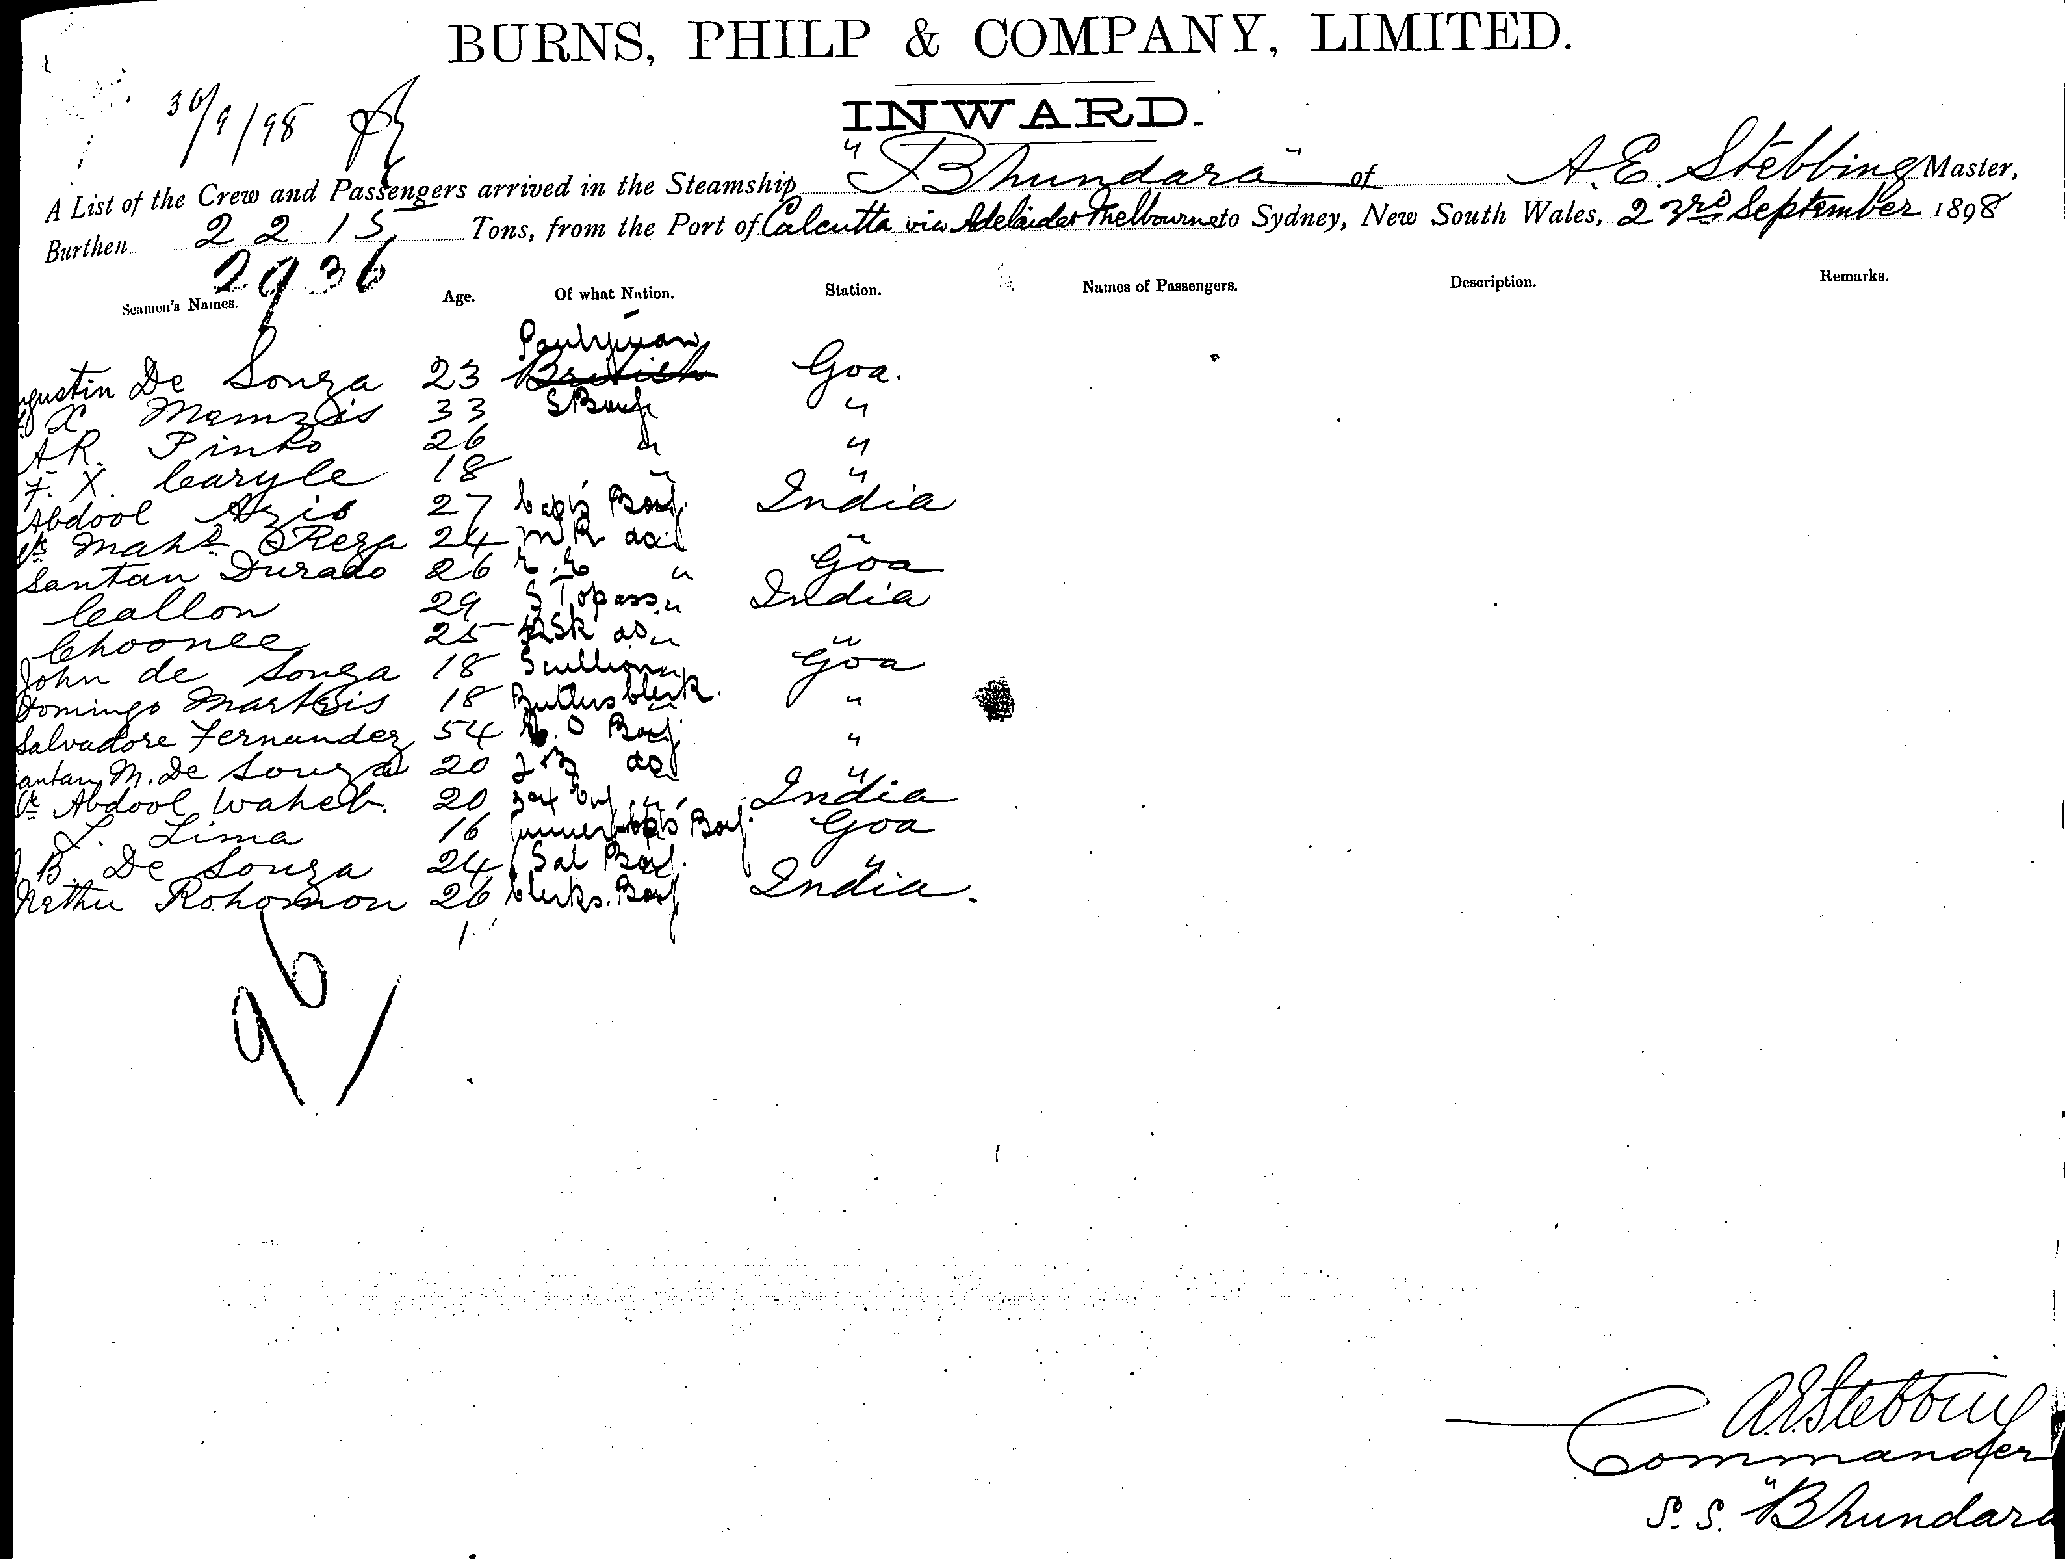 BURNS, PHILP & COMPANY, LIMITED.
INWARD.
30/9/98
A List of the Crew and Passengers arrived in the Steamship "Bhundara" of A. E. Stebbing Master,
Burthen 2215 Tons, from the Port of Calcutta via Adelaide & Melbourne to Sydney, New South Wales, 23rd September 1898
2936
Seamen's Names. Age. Of what Nation. Station. Names of Passengers. Description. Remarks.
gustin De Souza 23 British Goa.
X 33 S Boy "
A R. Pinto 26 " "
F. X. Caryle 18 " "
Abdool Azis 27 Capts Boy. India
Maht Reza 24 do "
Santan Durado 26 " Goa
Callon 29 S Topass " India
Choonee 25 do " "
John de Souza 18 Scullion " Goa
Domingo 18 Butlers Clerk. "
Salvadore Fernandez 54 O Boy "
antan M. De Souza 20 do "
Abdool Waheb. 20 " India
L. Lima 16 Boy. Goa
B. De Souza 24 Sal Boy. "
Nathu Rohomon 26 Clerks. Boy India.
96/
A.E. Stebbing
Commander
S. S. "Bhundara